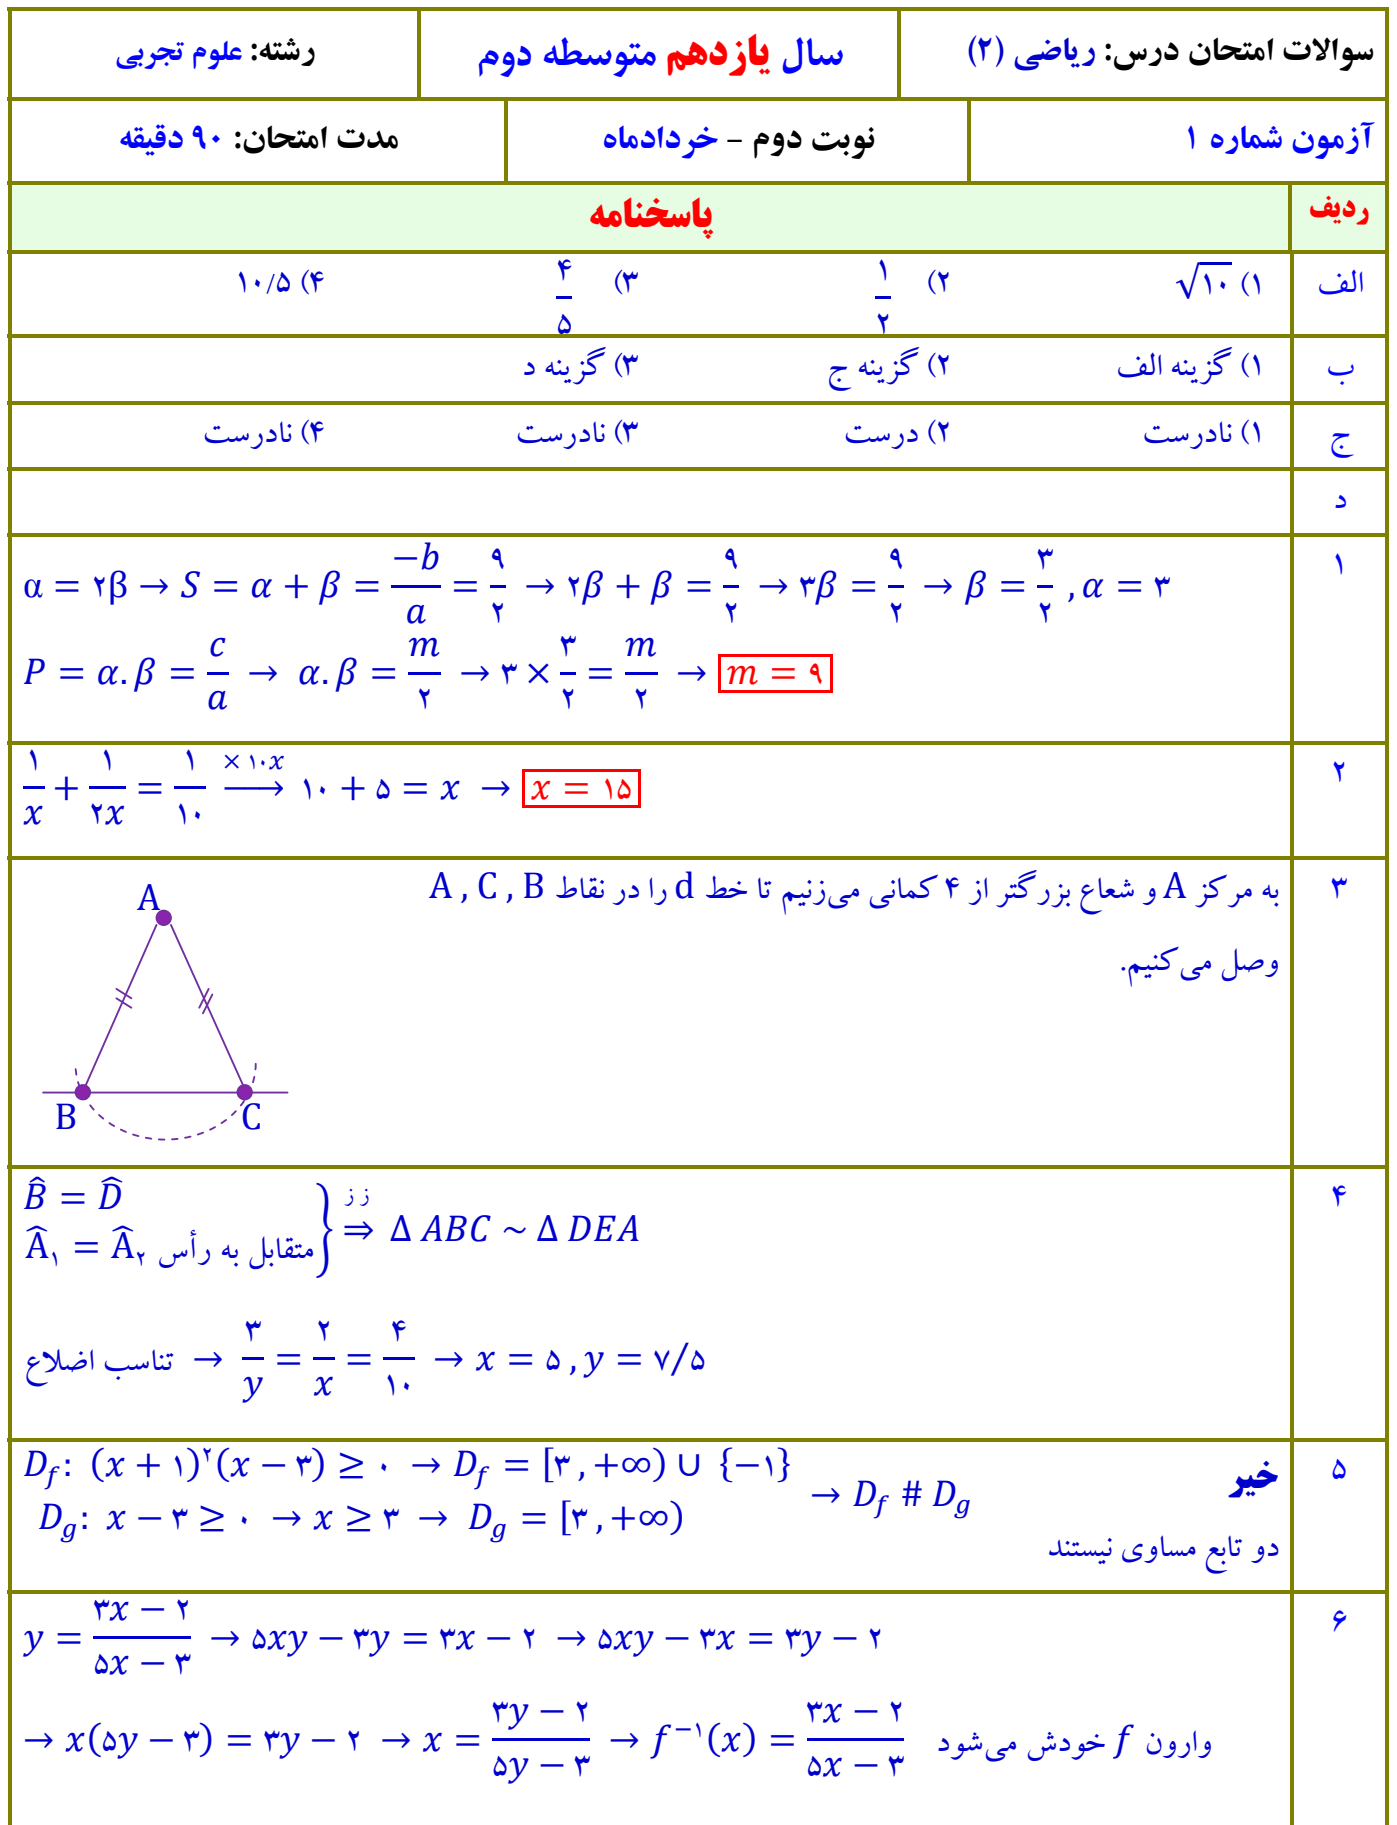 سوالات امتحان درس: ریاضی (۲) سال یازدهم متوسطه دوم رشته: علوم تجربی
آزمون شماره ۱ نوبت دوم – خردادماه مدت امتحان: ۹۰ دقیقه
ردیف پاسخنامه
الف ۱) √۱۰ ۲) ۱/۲ ۳) ۴/۵ ۴) ۱۰/۵
ب ۱) گزینه الف ۲) گزینه ج ۳) گزینه د
ج ۱) نادرست ۲) درست ۳) نادرست ۴) نادرست
د
۱
α = ۲β → S = α + β = −b/a = ۹/۲ → ۲β + β = ۹/۲ → ۳β = ۹/۲ → β = ۳/۲ , α = ۳
P = α.β = c/a → α.β = m/۲ → ۳ × ۳/۲ = m/۲ → m = ۹
۲
۱/x + ۱/۲x = ۱/۱۰ ×۱۰x ⟶ ۱۰ + ۵ = x → x = ۱۵
۳
به مرکز A و شعاع بزرگتر از ۴ کمانی می‌زنیم تا خط d را در نقاط A , C , B
وصل می‌کنیم.
A
B C
۴
B̂ = D̂
Â₁ = Â₂ متقابل به رأس } ز ز ⇒ Δ ABC ~ Δ DEA
تناسب اضلاع → ۳/y = ۲/x = ۴/۱۰ → x = ۵ , y = ۷/۵
۵
خیر
D_f: (x + ۱)^۲(x − ۳) ≥ ۰ → D_f = [۳ , +∞) ∪ {−۱}
D_g: x − ۳ ≥ ۰ → x ≥ ۳ → D_g = [۳ , +∞) → D_f # D_g
دو تابع مساوی نیستند
۶
y = (۳x − ۲)/(۵x − ۳) → ۵xy − ۳y = ۳x − ۲ → ۵xy − ۳x = ۳y − ۲
→ x(۵y − ۳) = ۳y − ۲ → x = (۳y − ۲)/(۵y − ۳) → f^−۱(x) = (۳x − ۲)/(۵x − ۳) وارون f خودش می‌شود